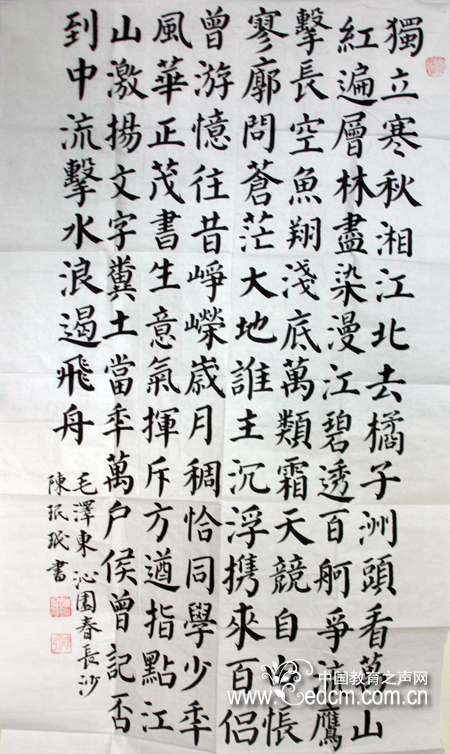 獨立寒秋湘江北去橘子洲頭看萬山
紅遍層林盡染漫江碧透百舸爭流鷹
擊長空魚翔淺底萬類霜天競自由悵
寥廓問蒼茫大地誰主沉浮携來百侶
曾游憶往昔崢嶸歲月稠恰同學少秊
風華正茂書生意氣揮斥方遒指點江
山激揚文字糞土當秊萬户侯曾記否
到中流擊水浪遏飛舟
毛澤東沁園春長沙
陳珉書
中国教育之声网
www.edcm.com.cn